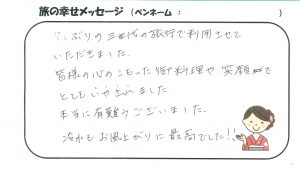 旅の幸せメッセージ（ペンネーム：　　　　　）
ぶりの三世代の旅行で利用させて
いただきました。
皆様の心のこもった御料理や笑顔
とても いやされました。
本当に有難うございました。
冷水もお風呂上がりに最高でした!!